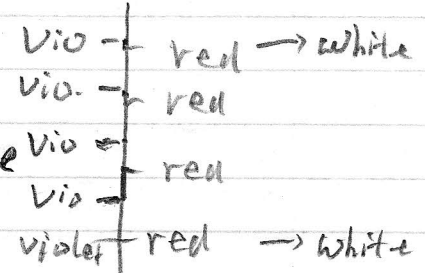 Vio red → white
Vio. red
e Vio
red
Vio
violet red → white